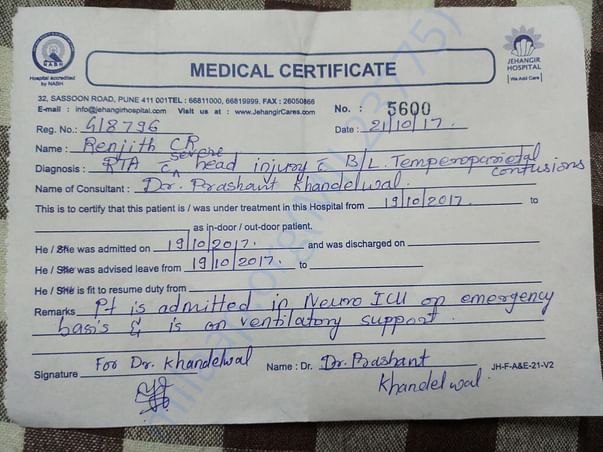 NABH
Hospital accredited
by NABH
MEDICAL CERTIFICATE
JEHANGIR
HOSPITAL
We Add Care
32, SASSOON ROAD, PUNE 411 001TEL : 66811000, 66819999, FAX : 26050866
E-mail : info@jehangirhospital.com Visit us at : www.JehangirCares.com
No. : 5600
Reg. No.: 418796
Date : 21/10/17.
Name : Renjith CR
Diagnosis : RTA c severe head injury c B/L. Temperoparietal
contusions
Name of Consultant : Dr. Prashant Khandelwal.
This is to certify that this patient is / was under treatment in this Hospital from 19/10/2017. to
as in-door / out-door patient.
He / She was admitted on 19/10/2017. and was discharged on
He / She was advised leave from 19/10/2017. to
He / She is fit to resume duty from
Remarks Pt is admitted in Neuro ICU on emergency
basis & is on ventilatory support.
Signature For Dr. Khandelwal Name : Dr. Dr. Prashant JH-F-A&E-21-V2
Khandelwal.